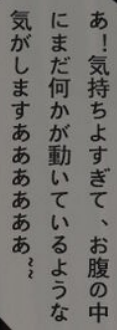 あ！気持ちよすぎて、お腹の中
にまだ何かが動いているような
気がしますああああああ~~